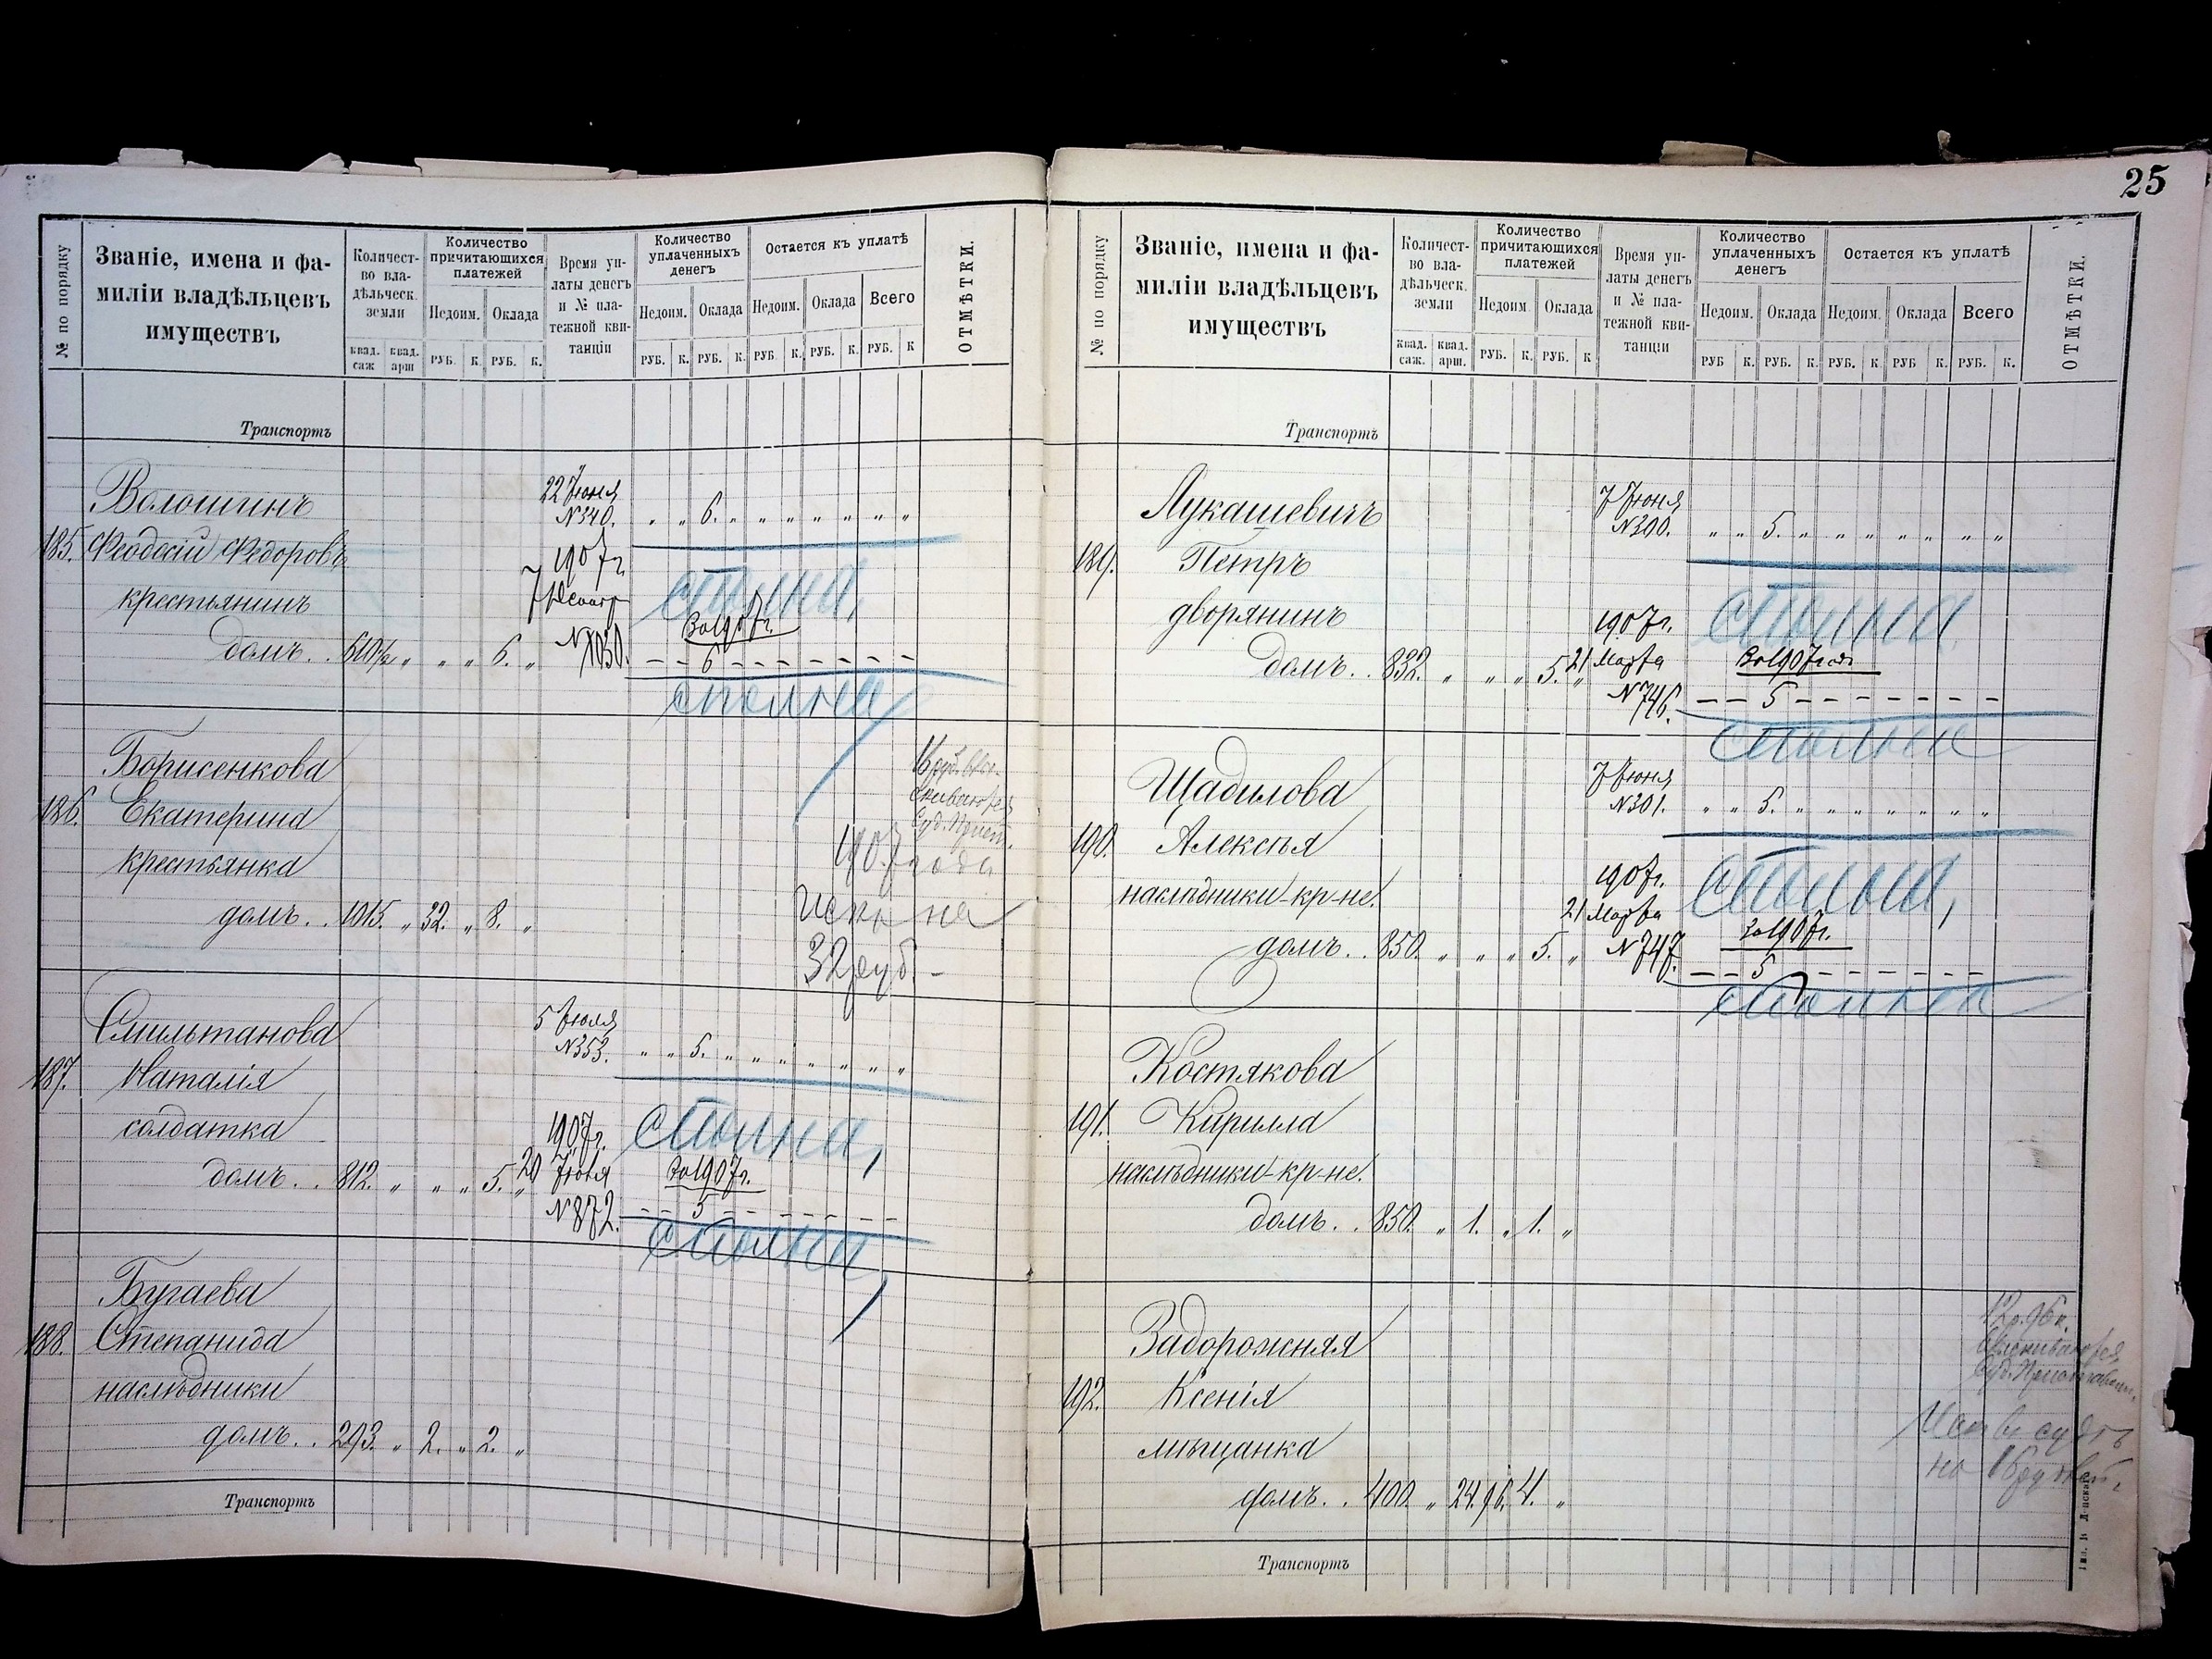 25
№ по порядку
Званіе, имена и фа-
миліи владѣльцевъ
имуществъ
Количест-
во вла-
дѣльческ.
земли
квад. саж
квад. арш
Количество
причитающихся
платежей
Недоим.
Оклада
РУБ. К. РУБ. К.
Время уп-
латы денегъ
и № пла-
тежной кви-
танціи
Количество
уплаченныхъ
денегъ
Недоим. Оклада
РУБ. К. РУБ. К.
Остается къ уплатѣ
Недоим. Оклада Всего
РУБ. К. РУБ. К. РУБ. К
ОТМѢТКИ.
Транспортъ
Волошинъ
185. Феодосій Федоровъ
крестьянинъ
домъ . . 610½ „ „ „ 6. „
22 Іюня
№340. „ „ 6. „ „ „ „ „ „ „
1907г.
7
№ 1030.
сполна
За1907г.
- - 6 - - - - - - - -
сполна
Борисенкова
186. Екатерина
крестьянка
домъ . . 1015. „ 32. „ 8. „
1907 года
искъ на
32 руб. -
Смильтанова
187. Наталія
солдатка
домъ . . 812. „ „ „ 5. „
5 Іюля
№353. „ „ 5. „ „ „ „ „ „ „
1907г.
20 Іюня
№872.
сполна
За1907г.
- - 5 - - - - - - -
сполна
Бугаева
188. Степанида
наслѣдники
домъ . . 293. „ 2. „ 2. „
Транспортъ
№ по порядку
Званіе, имена и фа-
миліи владѣльцевъ
имуществъ
Количест-
во вла-
дѣльческ.
земли
квад. саж.
квад. арш.
Количество
причитающихся
платежей
Недоим. Оклада
РУБ. К. РУБ. К
Время уп-
латы денегъ
и № пла-
тежной кви-
танціи
Количество
уплаченныхъ
денегъ
Недоим. Оклада
РУБ К. РУБ. К.
Остается къ уплатѣ
Недоим. Оклада Всего
РУБ. К. РУБ К. РУБ. К.
ОТМѢТКИ.
Транспортъ
Лукашевичъ
189. Петръ
дворянинъ
домъ . . 832. „ „ „ 5. „
7 Іюня
№300. „ „ 5. „ „ „ „ „ „ „
1907г.
21 Марта
№746.
сполна
За1907год
- - 5 - - - - - - - -
сполна
Щадилова
190. Алексѣя
наслѣдники-кр-не.
домъ . . 850. „ „ „ 5. „
7 Іюня
№301. „ „ 5. „ „ „ „ „ „ „
1907г.
21 Марта
№747.
сполна
За1907г.
- - 5 - - - - - - -
сполна
Костякова
191. Кирилла
наслѣдники-кр-не.
домъ . . 850. „ 1. „ 1. „
Задорожняя
192. Ксенія
мѣщанка
домъ . . 400. „ 24. 96. 4. „
12р.96к.
Транспортъ